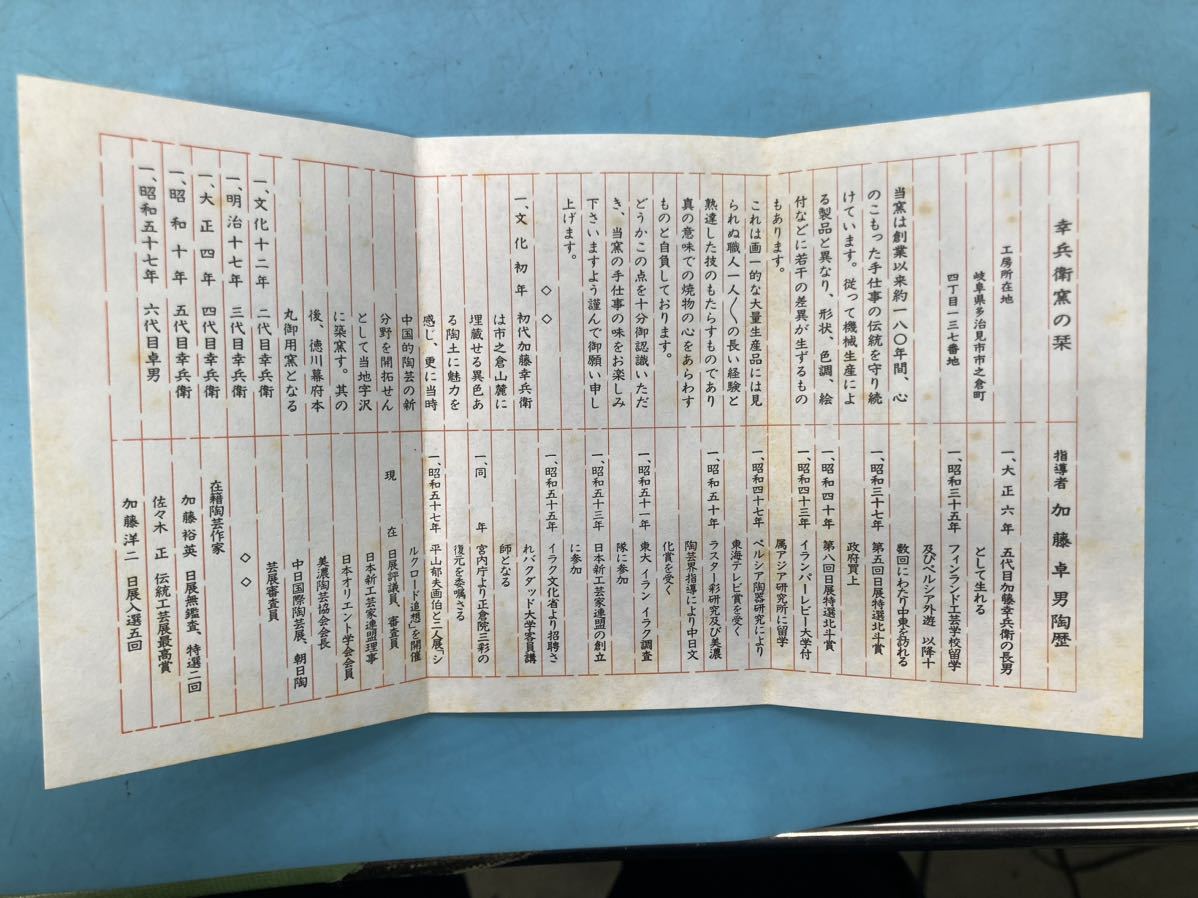 幸兵衛窯の栞
工房所在地
岐阜県多治見市市之倉町
四丁目一三七番地
当窯は創業以来約一八〇年間、心
のこもった手仕事の伝統を守り続
けています。従って機械生産によ
る製品と異なり、形状、色調、絵
付などに若干の差異が生ずるもの
もあります。
これは画一的な大量生産品には見
られぬ職人一人〱の長い経験と
熟達した技のもたらすものであり
真の意味での焼物の心をあらわす
ものと自負しております。
どうかこの点を十分御認識いただ
き、当窯の手仕事の味をお楽しみ
下さいますよう謹んで御願い申し
上げます。
◇ ◇
一、文化初年 初代加藤幸兵衛
は市之倉山麓に
埋蔵せる異色あ
る陶土に魅力を
感じ、更に当時
中国的陶芸の新
分野を開拓せん
として当地字沢
に築窯す。其の
後、徳川幕府本
丸御用窯となる
一、文化十二年 二代目幸兵衛
一、明治十七年 三代目幸兵衛
一、大正四年 四代目幸兵衛
一、昭和十年 五代目幸兵衛
一、昭和五十七年 六代目卓男
指導者 加藤卓男陶歴
一、大正六年 五代目加藤幸兵衛の長男
として生れる
一、昭和三十五年 フィンランド工芸学校留学
及びペルシア外遊 以降十
数回にわたり中東を訪れる
一、昭和三十七年 第五回日展特選北斗賞
政府買上
一、昭和四十年 第八回日展特選北斗賞
一、昭和四十三年 イランパーレビー大学付
属アジア研究所に留学
一、昭和四十七年 ペルシア陶器研究により
東海テレビ賞を受く
一、昭和五十年 ラスター彩研究及び美濃
陶芸界指導により中日文
化賞を受く
一、昭和五十一年 東大イランイラク調査
隊に参加
一、昭和五十三年 日本新工芸家連盟の創立
に参加
一、昭和五十五年 イラク文化省より招聘さ
れバクダッド大学客員講
師となる
一、同年 宮内庁より正倉院三彩の
復元を委嘱さる
一、昭和五十七年 平山郁夫画伯と二人展「シ
ルクロード追想」を開催
現在 日展評議員、審査員
日本新工芸家連盟理事
日本オリエント学会会員
美濃陶芸協会会長
中日国際陶芸展、朝日陶
芸展審査員
◇ ◇
在籍陶芸作家
加藤裕英 日展無鑑査、特選二回
佐々木正 伝統工芸展最高賞
加藤洋二 日展入選五回